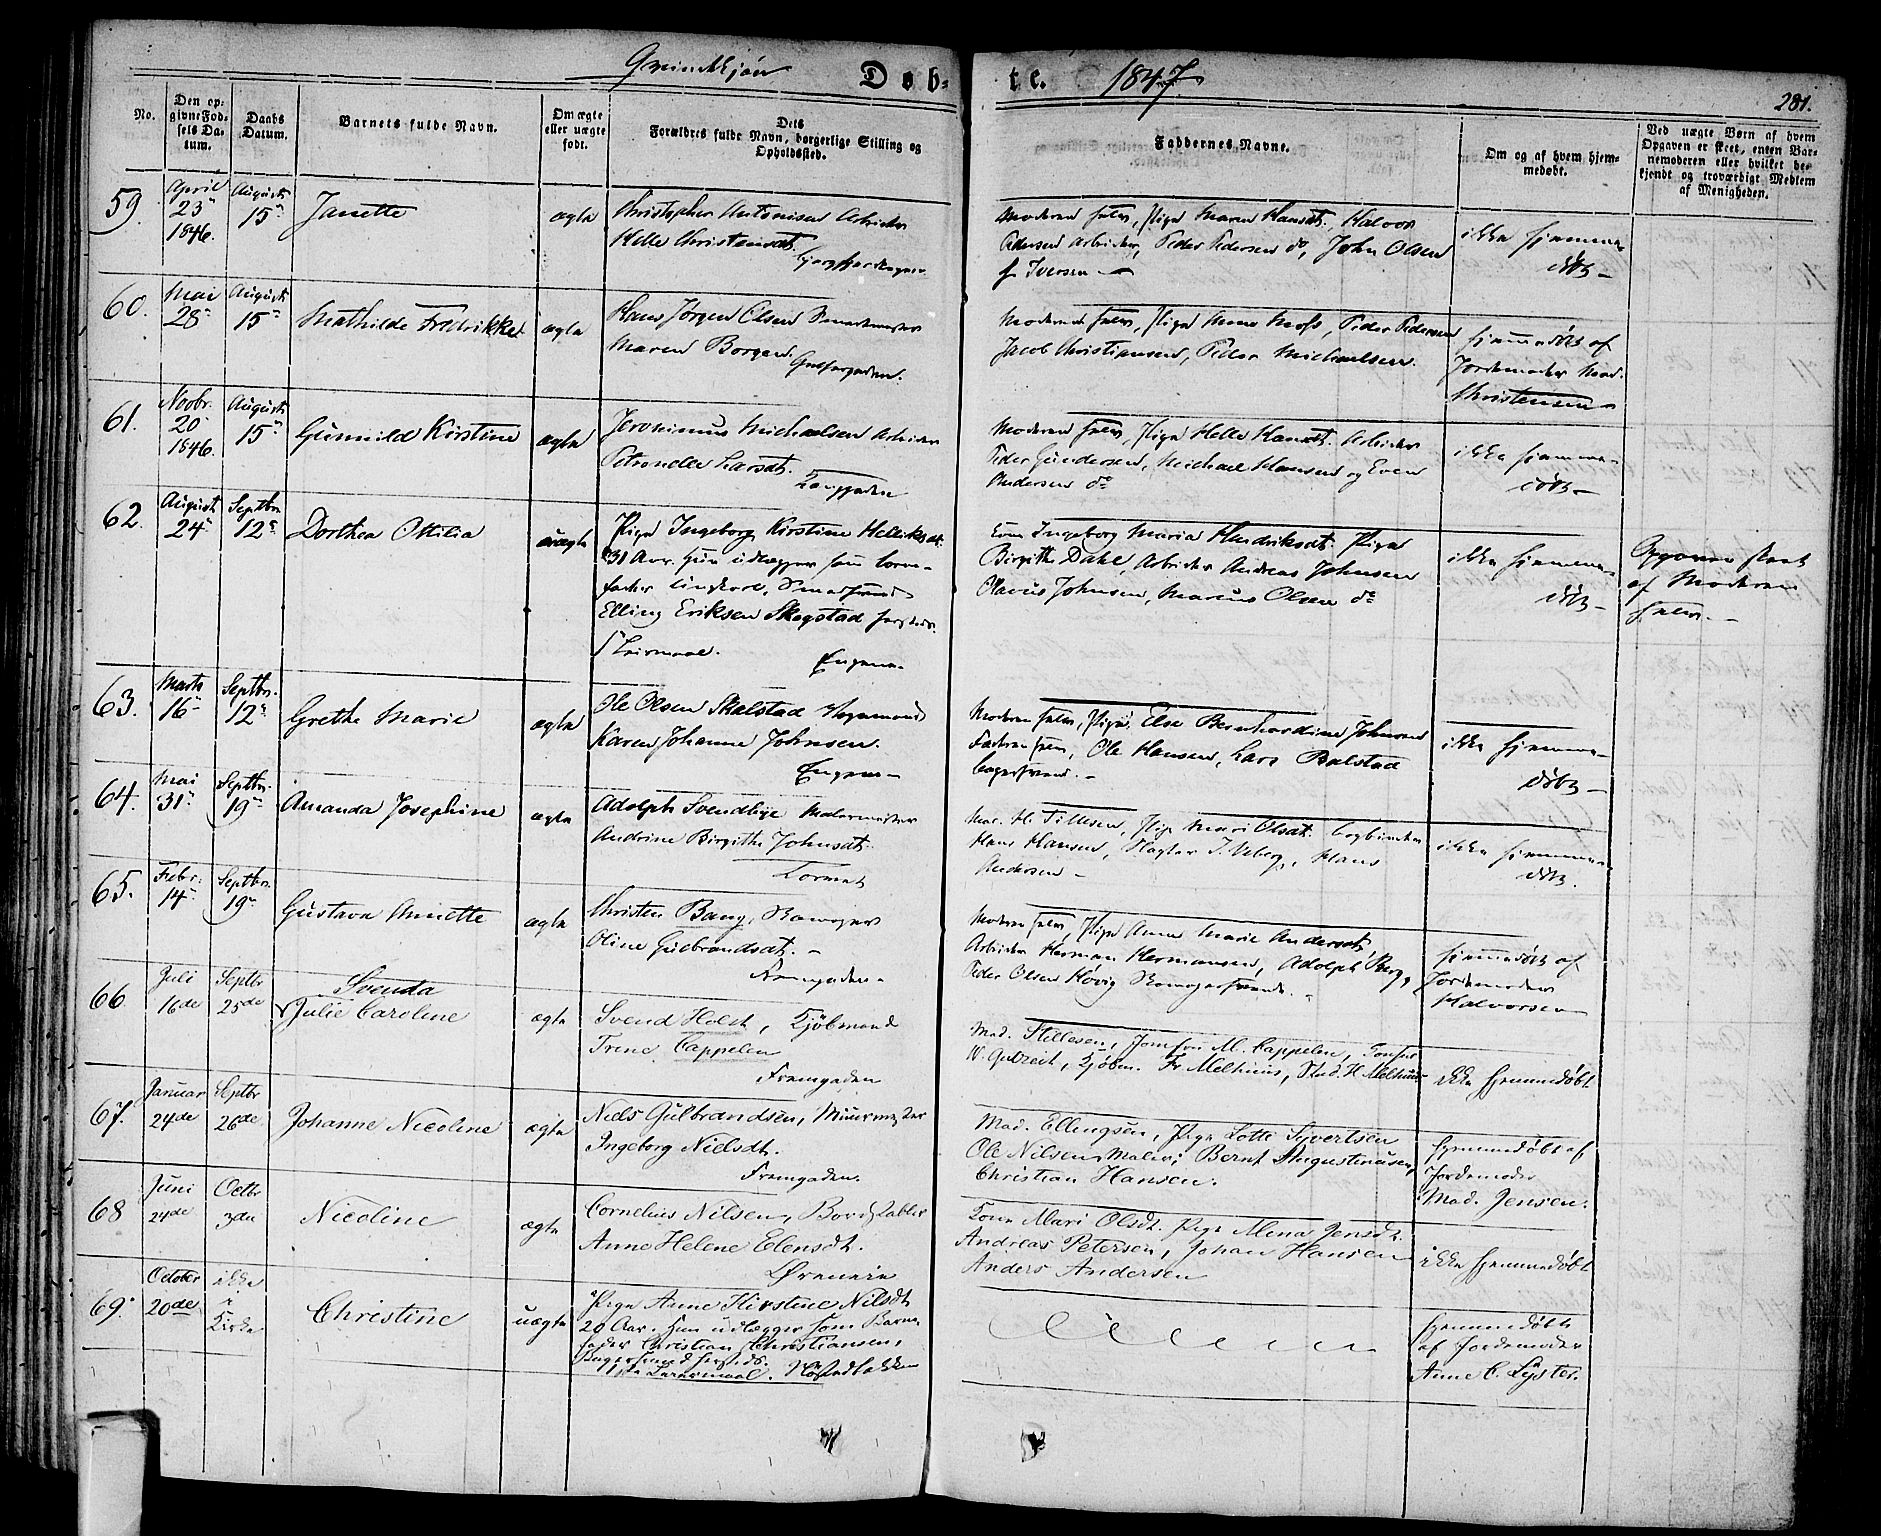 Qvindekjøn Døb- te. 1847 281.
No.
Den op-
givne Fød-
sels Da-
tum.
Daabs
Datum.
Barnets fulde Navn.
Om ægte
eller uægte
født.
Dets
Forældres fulde Navn, borgerlige Stilling og
Opholdssted.
Faddernes Navne.
Om og af hvem hjem-
medøbt.
Ved uægte Børn af hvem
Opgaven er skeet, enten Bar-
nemoderen eller hvilket be-
kjendt og troværdigt Medlem
af Menigheden.
59. April 23 1846. August 15 Janette ægte
Christopher Antonisen Arbeider
Helle Christensdt.
Moderen selv, Pige Maren Hansdt. Halvor
Pedersen Arbeider, Peder Pedersen do, John Olsen
Iversen
ikke hjemme-
døbt
60. Mai 28 August 15 Mathilde Fredrikke ægte
Hans Jørgen Olsen
Maren Borgen.
Moderen selv, Pige Anne Moss, Peder Pedersen
Jacob Christiansen, Peder Michaelsen.
hjemmedøbt af
Jordemoder Mad.
Christensen
61. Novbr. 20 1846. August 15 Gunnild Kirstine ægte
Jeronimus Michaelsen Arbeider
Petronelle Larsdt.
Langgaden
Moderen selv, Pige Helle Hansdt. Arbeider
Peder Gundersen, Michael Hansen og Even
Andersen do
ikke hjemme-
døbt
62. August 24 Septbr. 12 Dorthea Ottilia uægte
Pige Ingeborg Kirstine Helliksdt.
31 Aar. Hun udlægger som Barne-
fader Ungkarl,
Elling Eriksen Skogstad
1ste Leiermaal.
Engene
Ingeborg Maria Hendriksdt. Pige
Birgithe Dahl, Arbeider Andreas Johnsen
Olavus Johnsen, Marius Olsen do
ikke hjemme-
døbt
Opgaven skeet
af Moderen
selv.
63. Marts 16 Septbr. 12 Grethe Marie ægte
Ole Olsen Skalstad Vognmand
Karen Johanne Johnsen.
Engene
Moderen selv, Pige Else Bernhardine Johnsen
Faderen selv, Ole Hansen, Lars Bolstad
Bagersvend.
ikke hjemme-
døbt
64. Mai 31 Septbr. 19 Amanda Josephine ægte
Adolph Svendlye Malermester
Andrine Birgithe Johnsdt.
Tormet
Mad. H. Tillesen, Pige Mari Olsdt. Bogbinder
Hans Hansen, Slagter J. Ueberg, Hans
Andersen
ikke hjemme-
døbt.
65. Febr. 14 Septbr. 19 Gustava Annette ægte
Christen Bang,
Oline Gulbrandsdt.
Fremgaden
Moderen selv, Pige Anne Marie Andersdt,
Arbeider Herman Hermansen, Adolph Berg,
Peder Olsen Høvig
hjemmedøbt af
Jordemoder
Halvorsen
66 Juli 16de Septbr 25de Svenda
Julie Caroline ægte
Svend Holst, Kjøbmand
Trine Cappelen
Fremgaden
Mad. Stillesen, Jomfru M. Cappelen, Jomfru
W. Gulzeit, Kjøbm. Fr Melhuus, Stud. H Melhuus
ikke hjemmedøbt
67. Januar 24de Septbr 26de Johanne Nicoline ægte
Niels Gulbrandsen, Muurmester
Ingeborg Nielsdt.
Fremgaden.
Mad. Ellingsen, Pige Lotte Syvertsen
Ole Nilsen Maler, Bernt Augustinusen,
Christian Hansen.
hjemmedøbt af
Jordemoder
Mad. Jensen.
68 Juni 24de Octbr 3die Nicoline ægte
Cornelius Nilsen, Bordstabler
Anne Helene Elensdt.
Ørenein
Kone Mari Olsdt. Pige Mena Jensdt.
Andreas Petersen, Johan Hansen
Anders Andersen
ikke hjemmedøbt
69. October 20de ikke i Kirke Christine uægte
Pige Anne Kirstine Nilsdt
20 Aar. Hun udlægger som Barne-
fader Christian Christiansen,
Bagersvend
1ste Leiermaal.
hjemmedøbt
af Jordemoder
Anne C. Lyster.